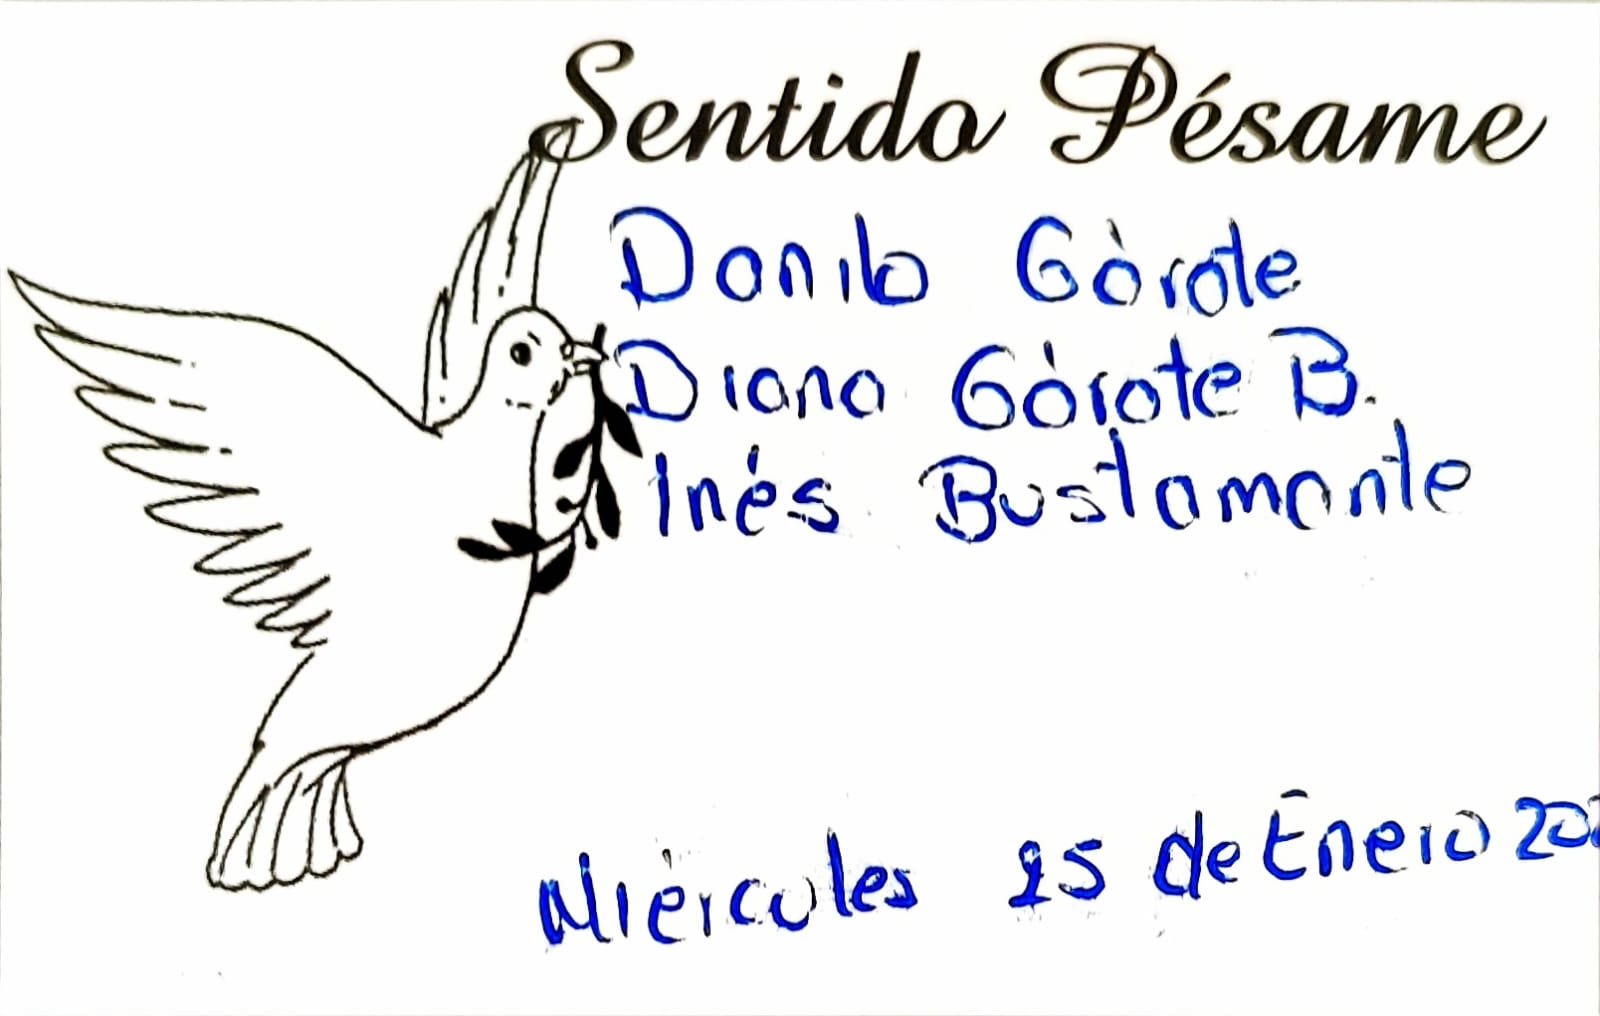 Sentido Pésame
Danilo Gárate
Diana Gárate B.
Inés Bustamante
Miércoles 25 de Enero 202